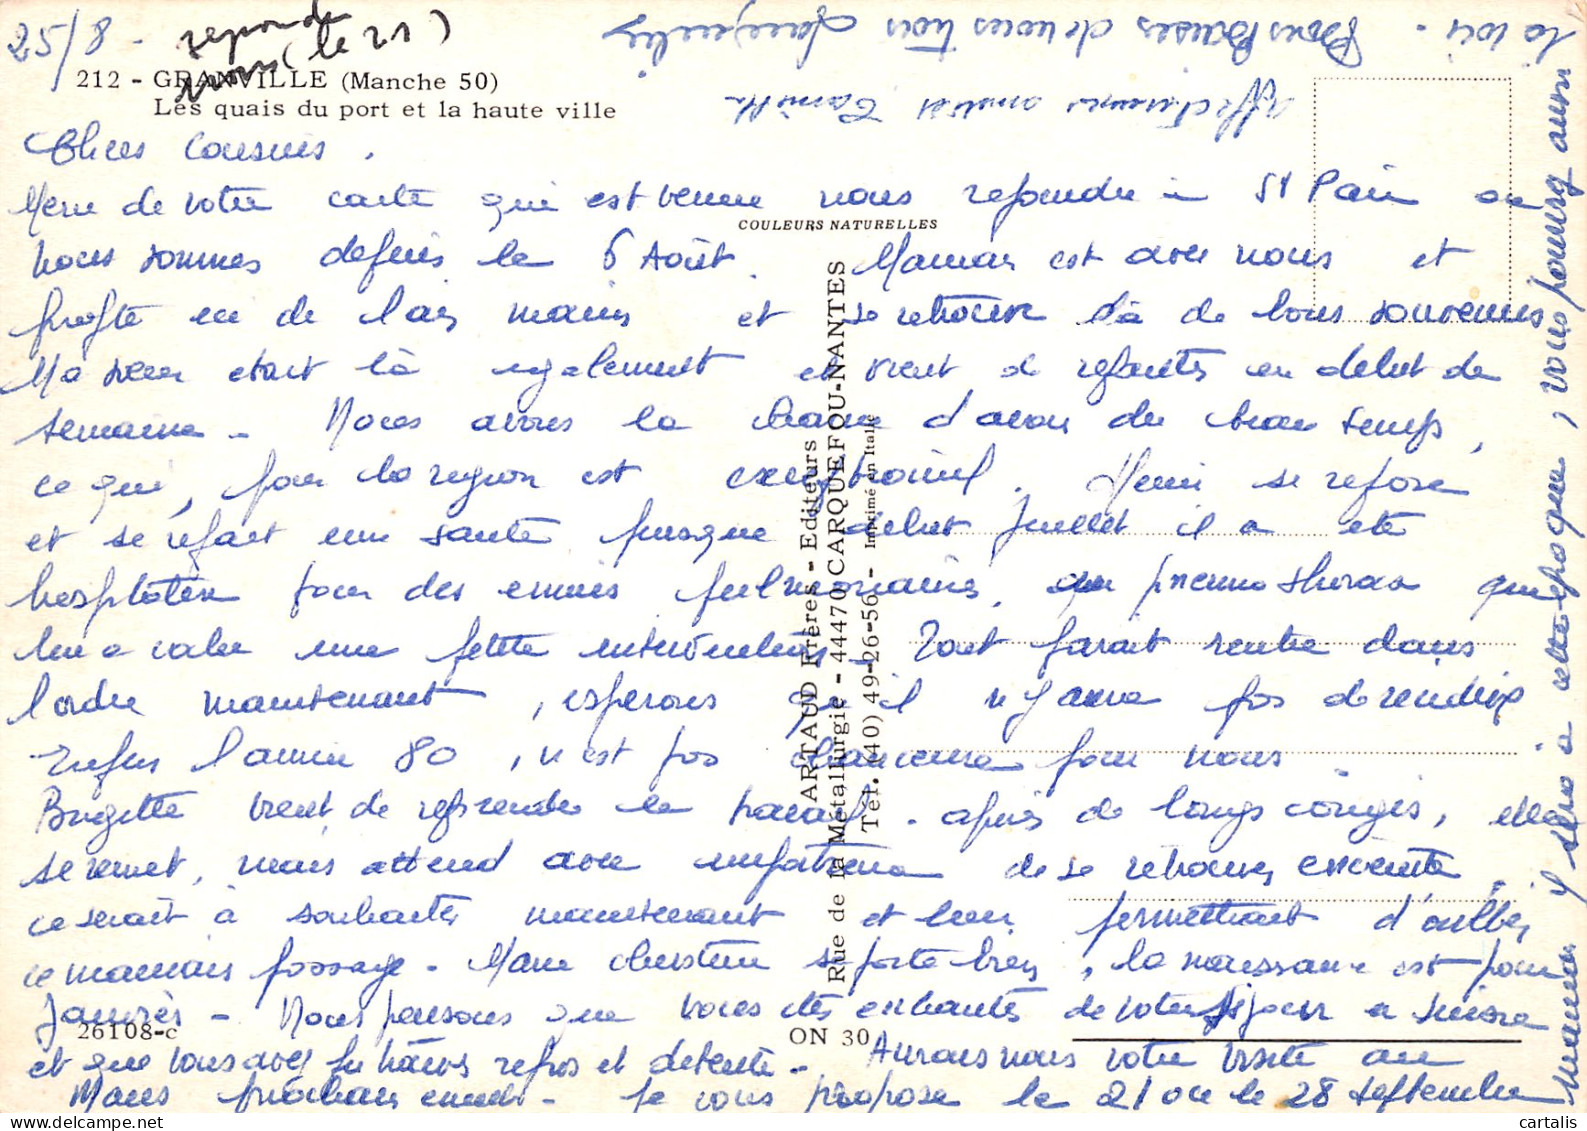 25/8 - repondu
non (le 21)
212 - GRANVILLE (Manche 50)
Les quais du port et la haute ville
Chers Cousins,
Merci de votre carte qui est venue nous rejoindre à St Pair où
nous sommes depuis le 6 Août. Maman est avec nous et
profite de l'air marin et se retrouve là de bons souvenirs
Ma soeur etait là également et vient de repartir en debut de
semaine - Nous avons la chance d'avoir du beau temps,
ce qui, pour la region est exceptionnel. Henri se repose
et se refait une santé puisque debut Juillet il a eté
hospitalisé pour des ennuis pulmonaires, un pneumothorax qui
lui a valu une petite intervention. Tout parait rentré dans
l'ordre maintenant, esperons qu'il n'y aura pas de recidive
l'année 80, n'est pas chanceuse pour nous.
Brigitte vient de reprendre le travail - après de longs congés, elle
se remet, mais attend avec impatience de se retrouver enceinte,
ce serait à souhaiter maintenant et leur permettrait d'oublier
ce mauvais passage - Marie Christine se porte bien, la naissance est pour
Janvier - Nous pensons que vous etes enchantés de votre séjour en Suisse
et que vous avez pu trouver repos et detente - Aurons nous votre visite au
Mans prochainement - Je vous propose le 21 ou le 28 Septembre
maman sera à cette epoque, vous pourrez ainsi
la voir - Bons baisers de nous trois
Affectueuses amitiés
COULEURS NATURELLES
ARTAUD Frères - Editeurs
Rue de la Métallurgie - 44470 CARQUEFOU-NANTES
Tél. (40) 49-26-56 - Imprimé en Italie
26108-c
ON 30
cartalis